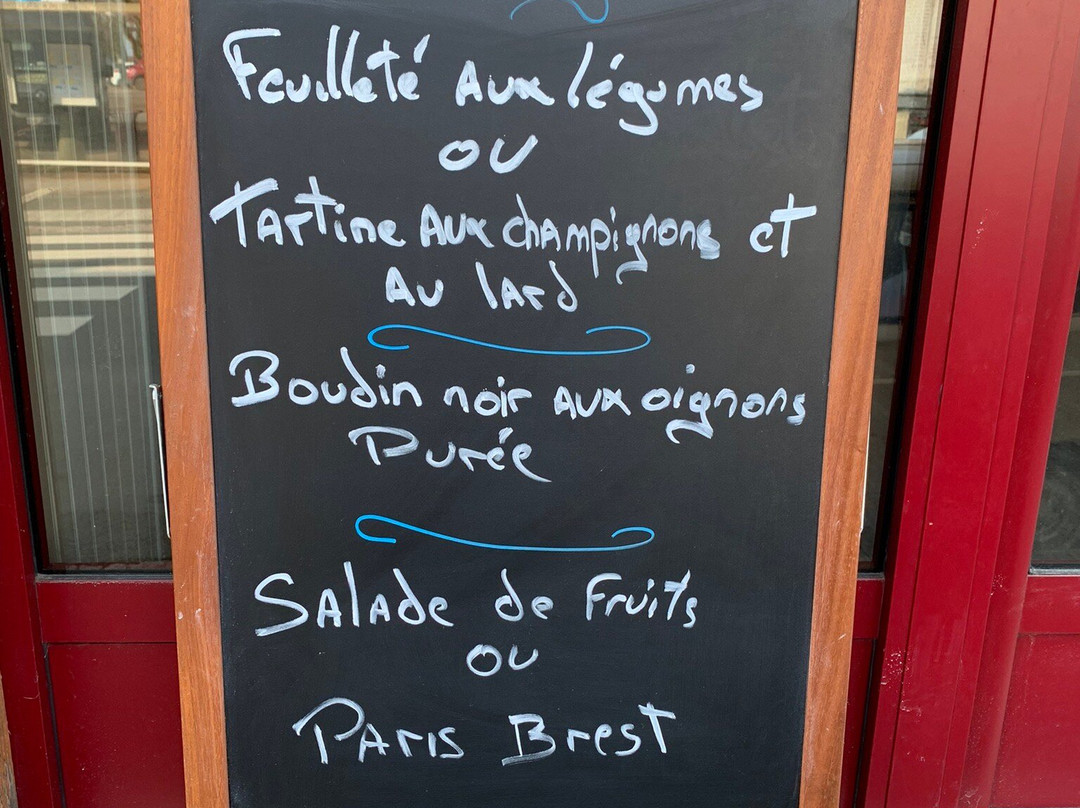 Feuilleté Aux légumes
OU
Tartine Aux champignons et
Au lard
Boudin noir aux oignons
Purée
Salade de Fruits
ou
Paris Brest